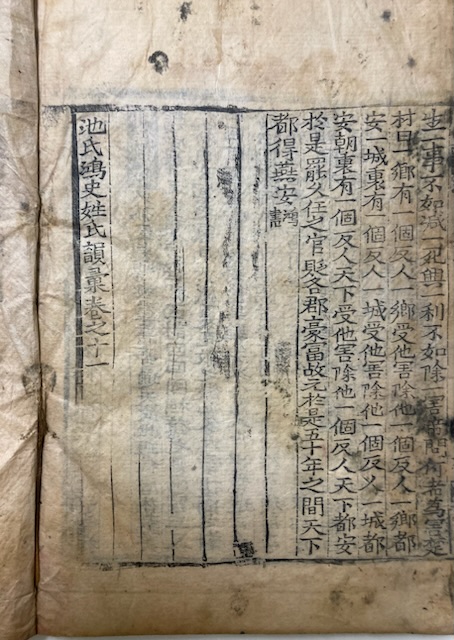 生一事不如減一興一利不如除一害問何者為害楚
材曰一鄉有一個反人一鄉受他害除他一個反人一鄉都
安一城裏有一個反人一城受他害除他一個反人一城都
安朝裏有一個反人天下受他害除他一個反人天下都安
於是罷久任之官貶各郡豪富故元於是五十年之間天下
都得蕪安鴻書
池氏鴻史姓氏韻彙卷之十一